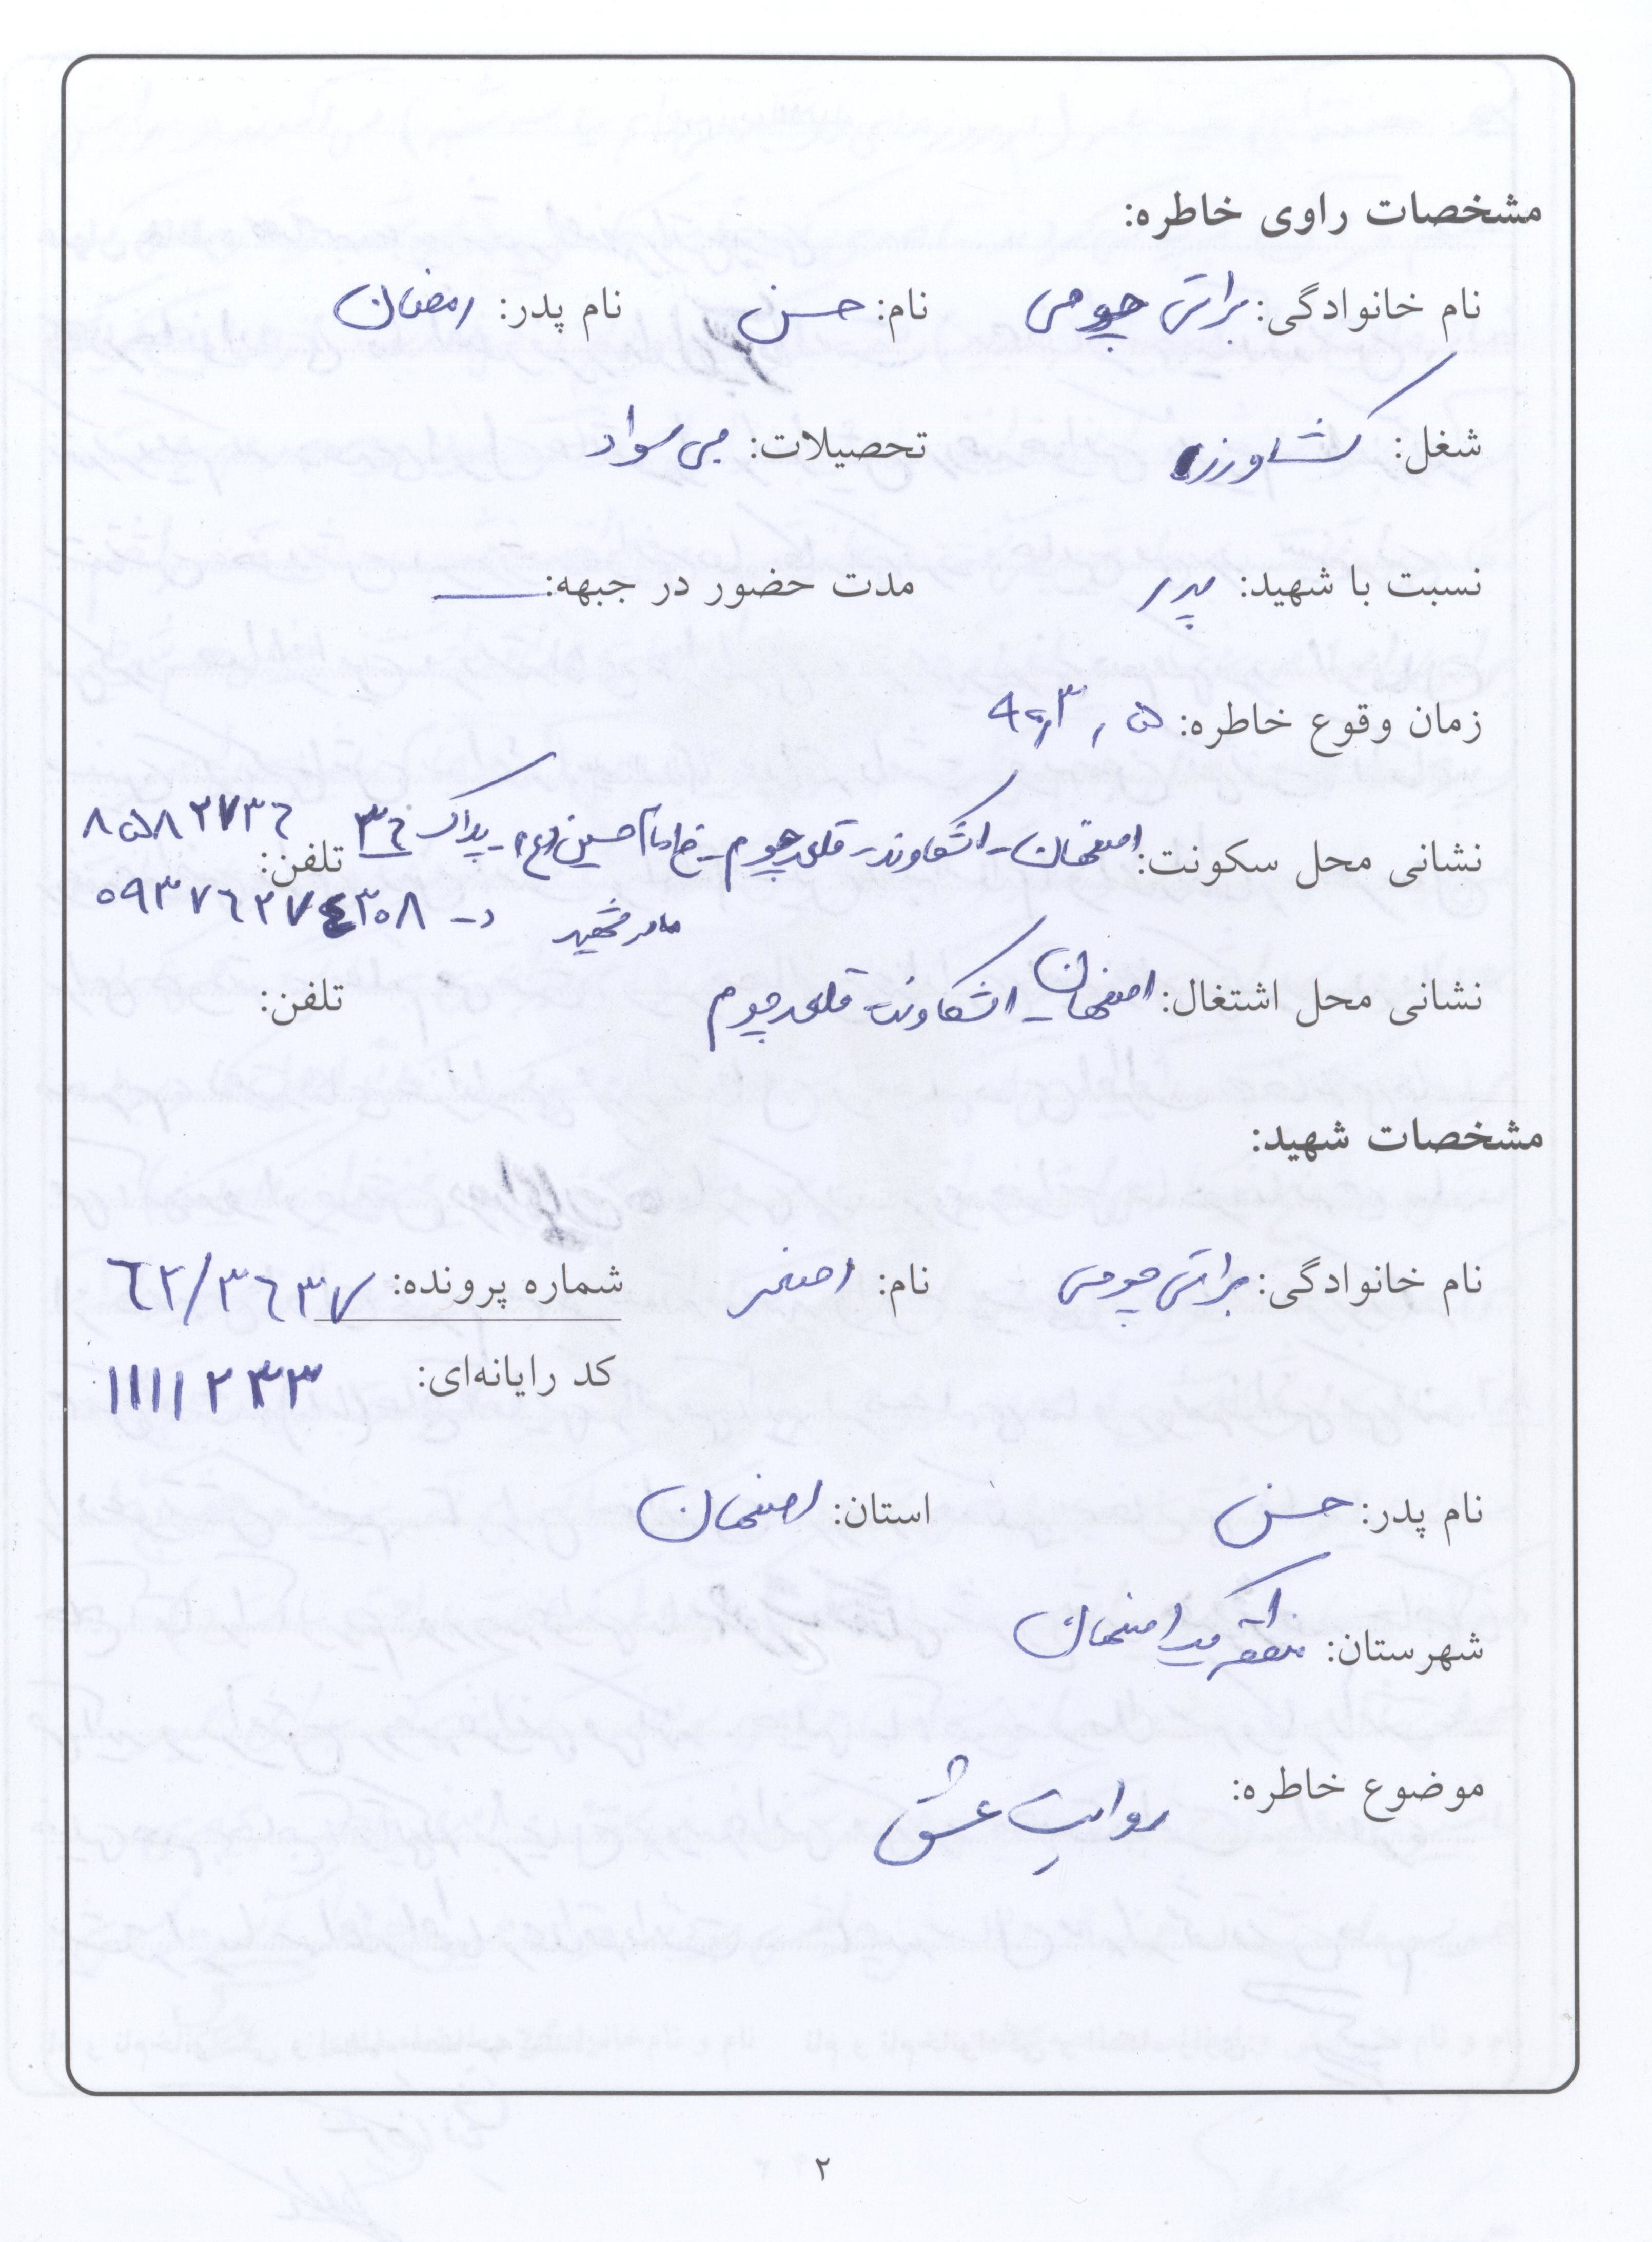 مشخصات راوی خاطره:
نام خانوادگی: براتی چومی نام: حسن نام پدر: رمضان
شغل: کشاورز تحصیلات: بی سواد
نسبت با شهید: پدر مدت حضور در جبهه: ــــ
زمان وقوع خاطره:
نشانی محل سکونت: اصفهان - اشکاوند - قلعه چوم - خ امام حسین (ع) - پلاک ۳۶ تلفن: ۸۵۸۲۷۳۶
مادر شهید ۰۹۳۷۶۲۷۴۳۰۸
نشانی محل اشتغال: اصفهان - اشکاوند - قلعه چوم تلفن:
مشخصات شهید:
نام خانوادگی: براتی چومی نام: اصغر شماره پرونده: ۶۲/۳۶۳۷
کد رایانه‌ای: ۱۱۱۱۲۳۳
نام پدر: حسن استان: اصفهان
شهرستان: منطقه یک اصفهان
موضوع خاطره: روایت عشق
۲